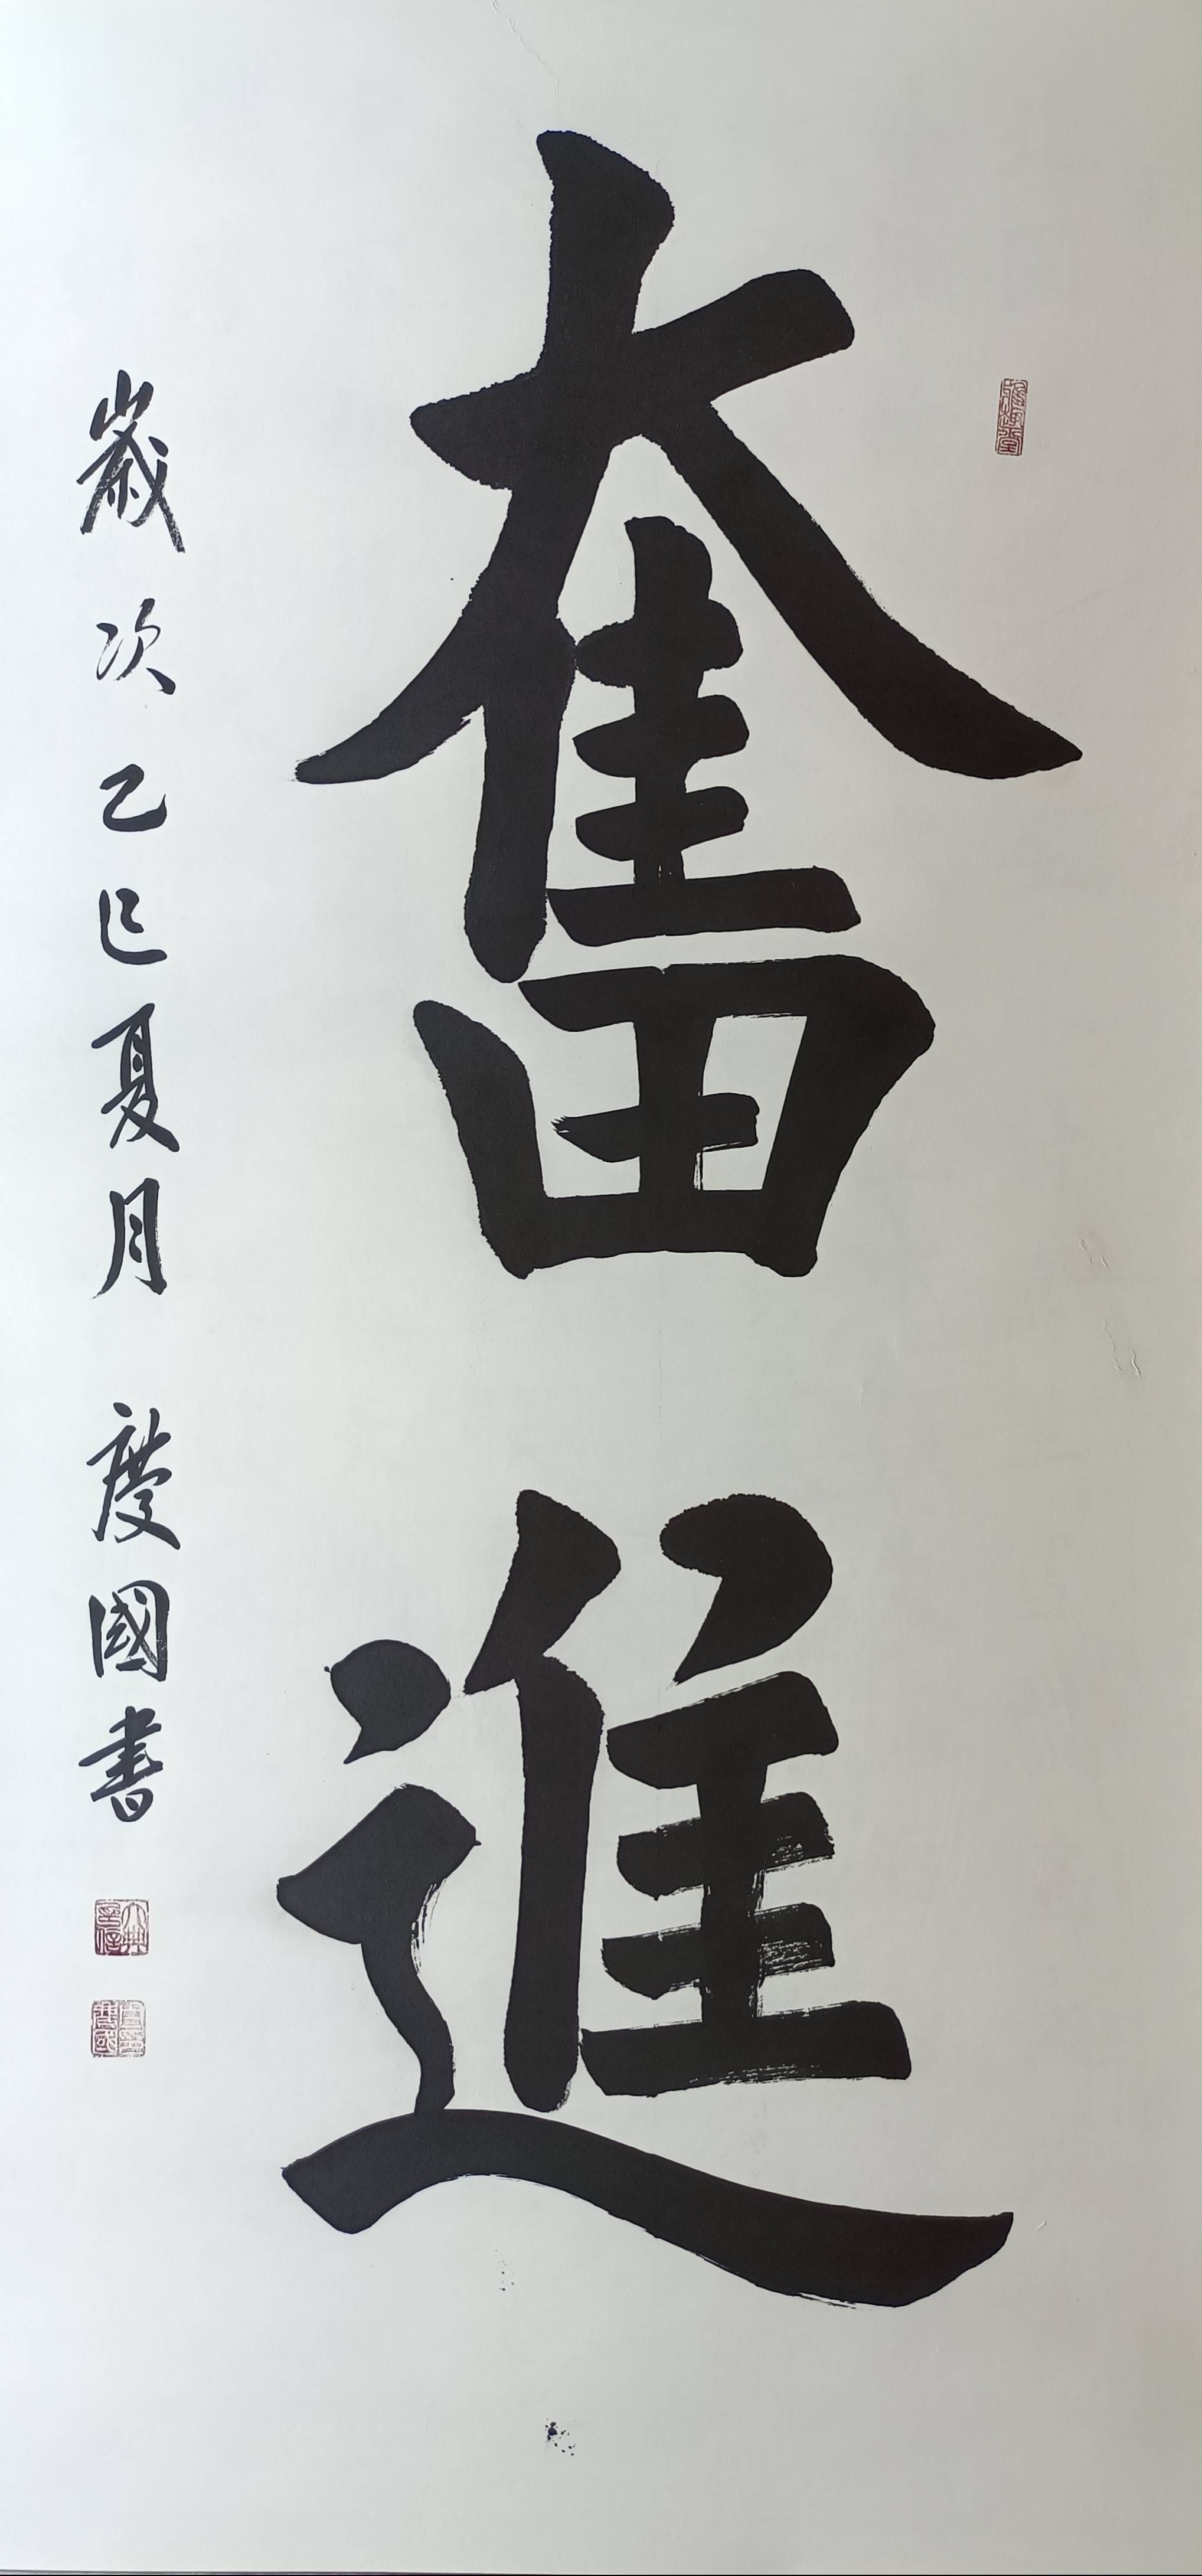 奮進
歲次乙巳夏月 慶國書